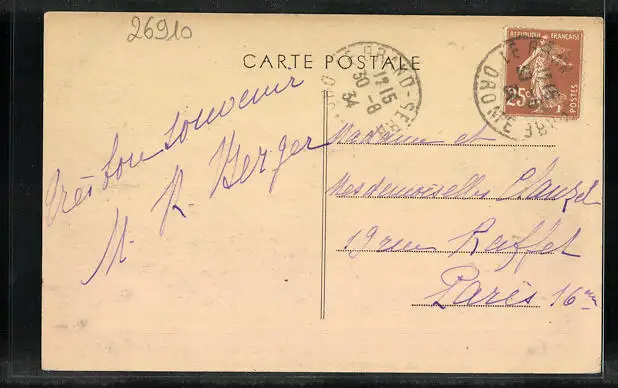 26910
CARTE POSTALE
REPUBLIQUE FRANÇAISE
25c
POSTES
LE GRAND-SERRE
DROME
12 15
30-8
34
Très bon souvenir
M. R. Berger
Madame et
Mesdemoiselles Clauzel
19 rue Raffet
Paris 16em